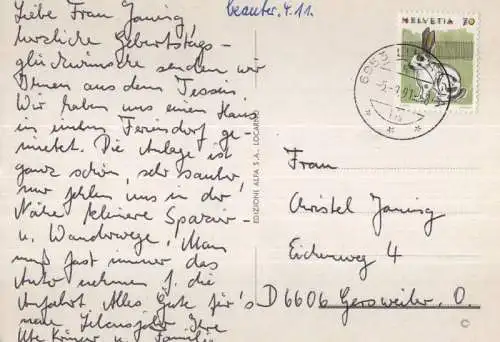 beantw. 4.11.
Liebe Frau Janing!
herzliche Geburtstags-
glückwünsche senden wir
Ihnen aus dem Tessin
Wir haben uns einen Haus
in einem Feriendorf ge-
mietet. Die Anlage ist
ganz schön, sehr sauber,
nur fehlen uns in der
Nähe kleinere Spazier-
u. Wanderwege. Man
muß fast immer das
Auto nehmen f. die
Anfahrt. Alles Gute für's
neue Lebensjahr Ihre
Ute u. Familie
EDIZIONI ALFA S.A., LOCARNO
HELVETIA 70
Frau
Christel Janing
Eichenweg 4
D 6606 Gersweiler, O.
©